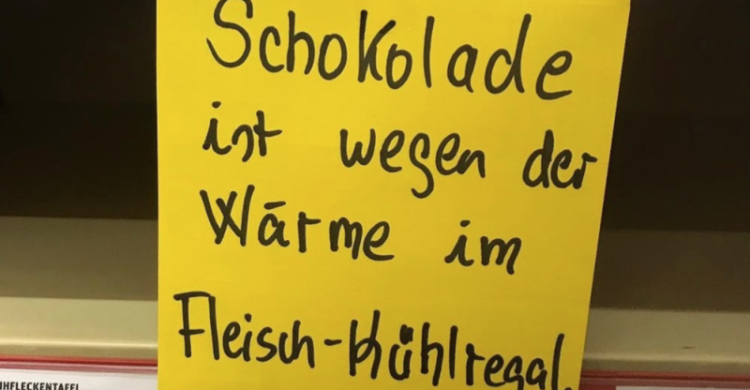 Schokolade
ist wegen der
Wärme im
Fleisch-Kühlregal.
HFLECKENTAFEL